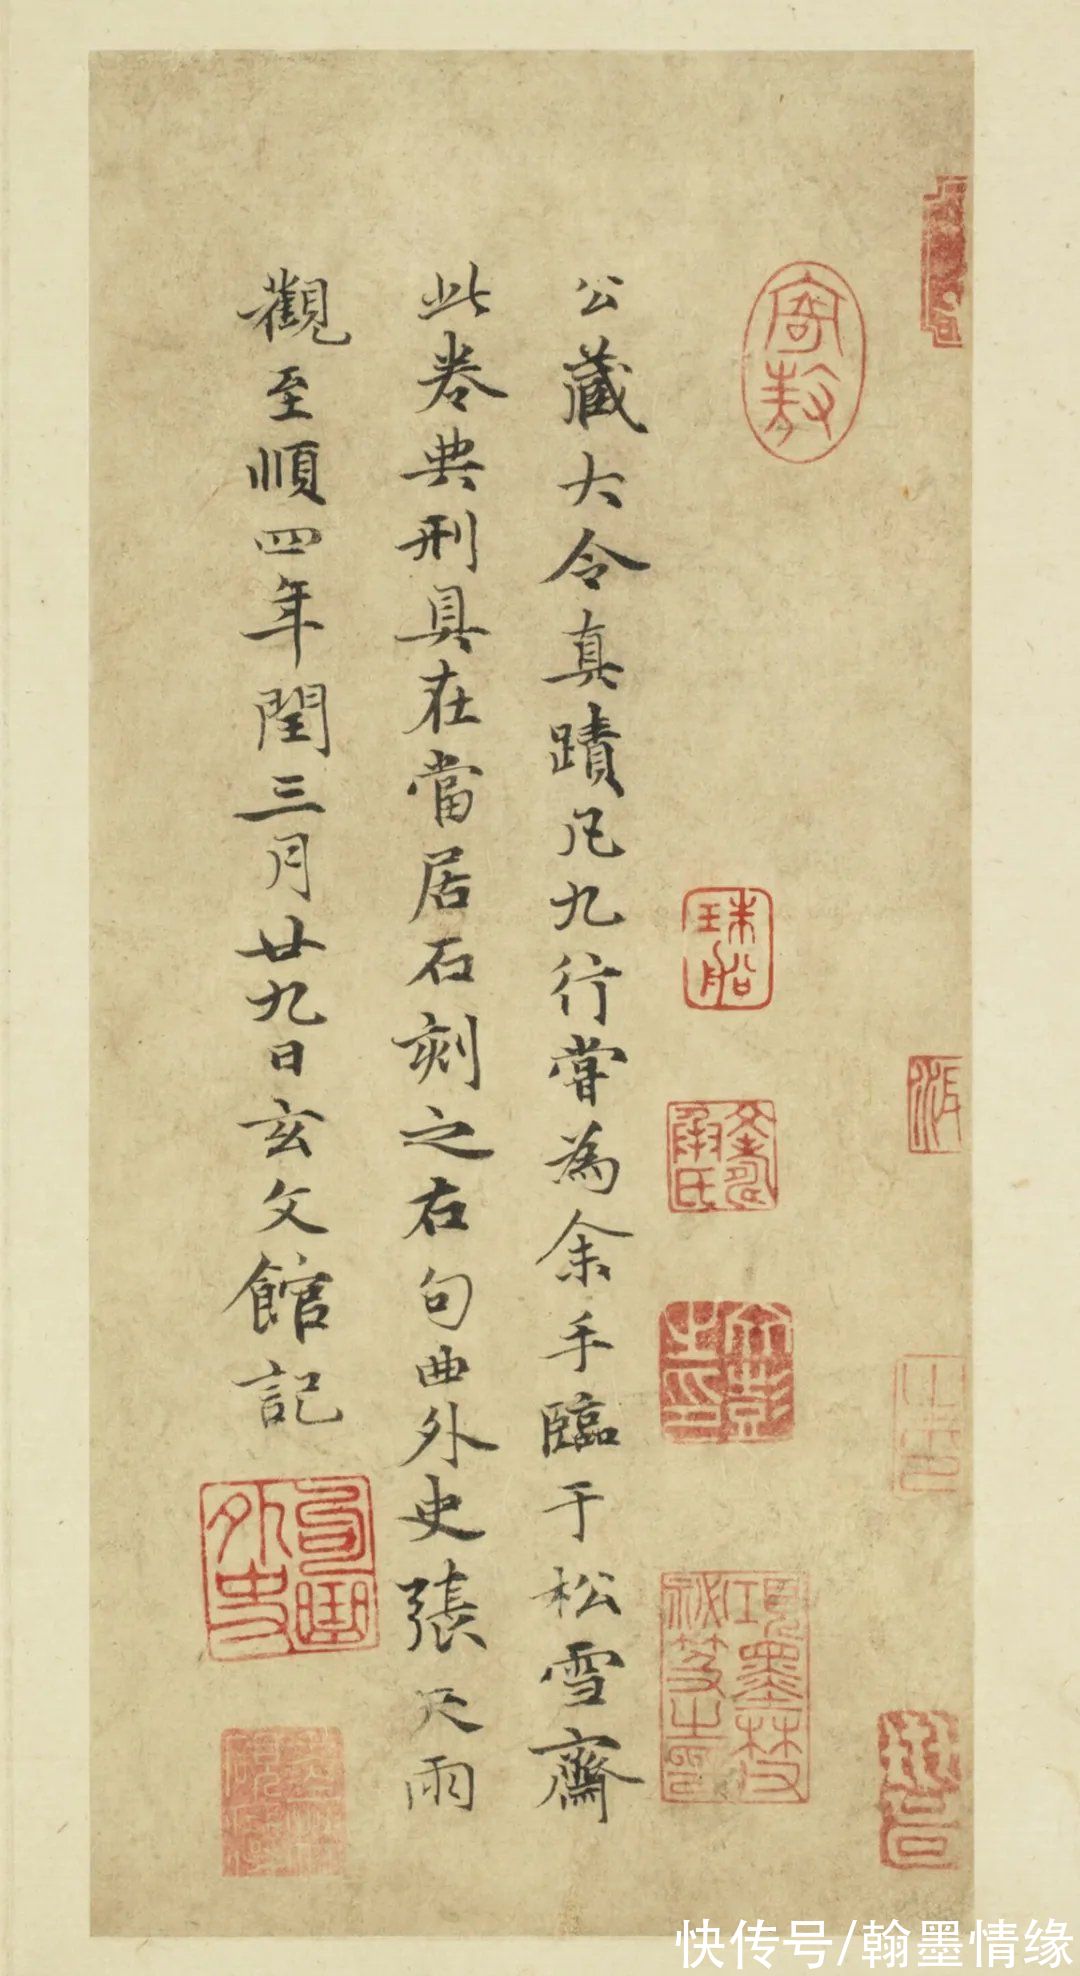 公藏大令真蹟凡九行嘗為余手臨于松雪齋
此卷典刑具在當居石刻之右句曲外史張天雨
觀至順四年閏三月廿九日玄文館記
寄敖
珠船
項墨林父
祕笈之印
句曲
外史
快传号/翰墨情缘